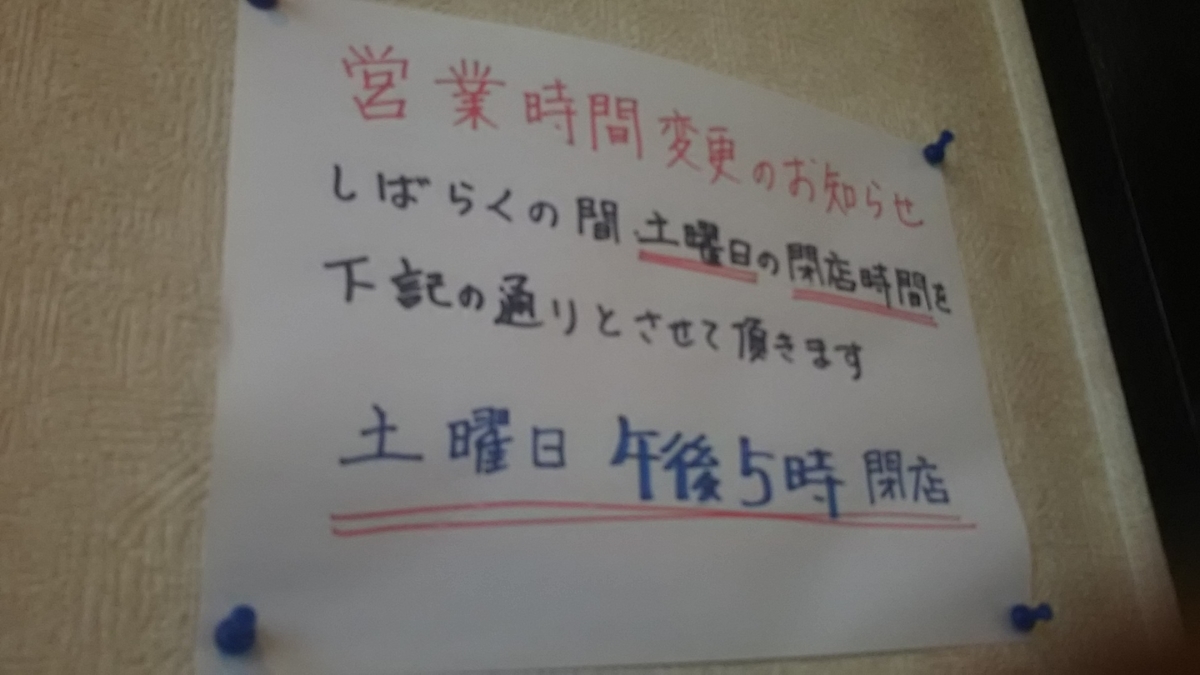 営業時間変更のお知らせ
しばらくの間、土曜日の閉店時間を
下記の通りとさせて頂きます
土曜日 午後5時 閉店